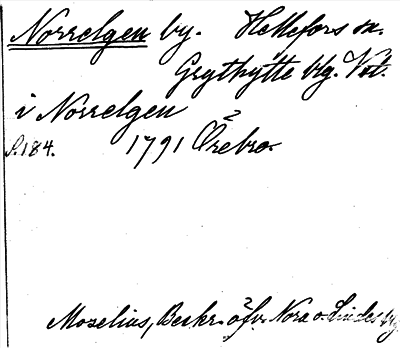 Norrelgen by. Hellefors sn.
Grythytte blg. Vstm.
i Norrelgen
S.184. 1791 Örebro
Moselius, Beskr. öfv. Nora o. Lindes